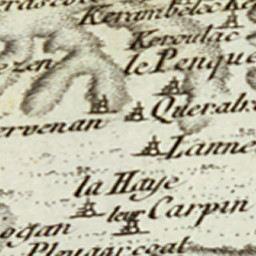 Kerambélec
Keroulac
le Penque
Querabr
ervenan
Lanne
la Haye
leur Carpin
ogan
Plougarcoat